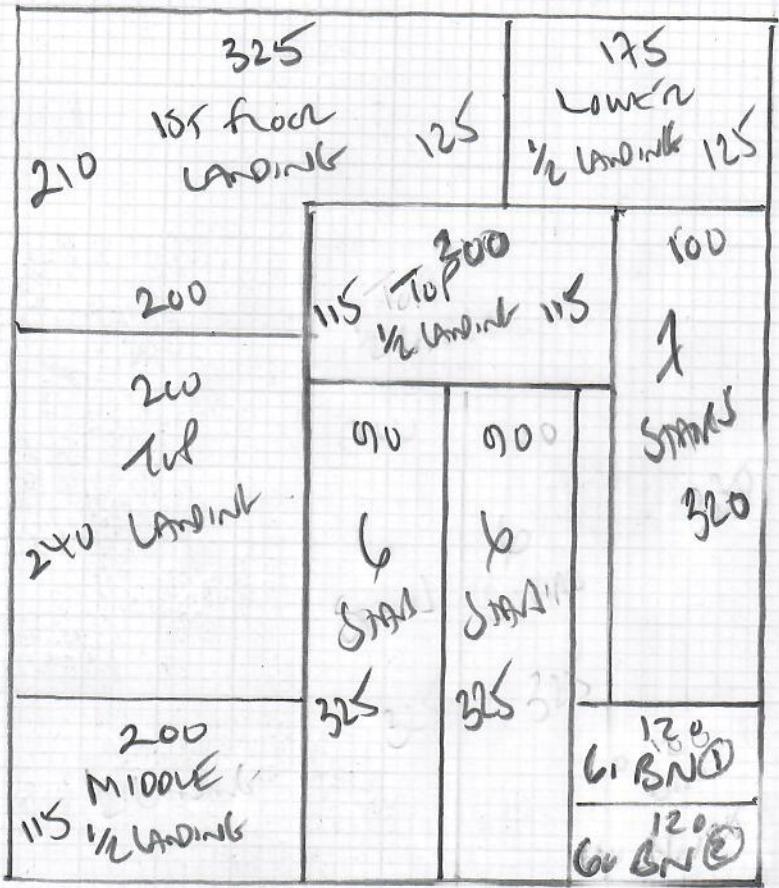 325
1ST FLOOR
LANDING
210
125
200
175
LOWER
1/2 LANDING
125
200
TOP
1/2 LANDING
115
115
100
7
STAIRS
320
200
TOP
LANDING
240
90
6
STAIRS
325
90
6
STAIRS
325
200
MIDDLE
1/2 LANDING
115
120
60 BN ①
120
60 BN ②